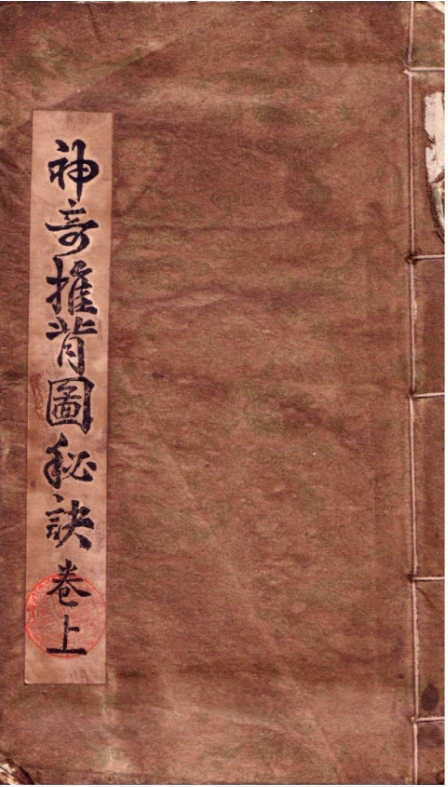 神奇推背圖秘訣卷上